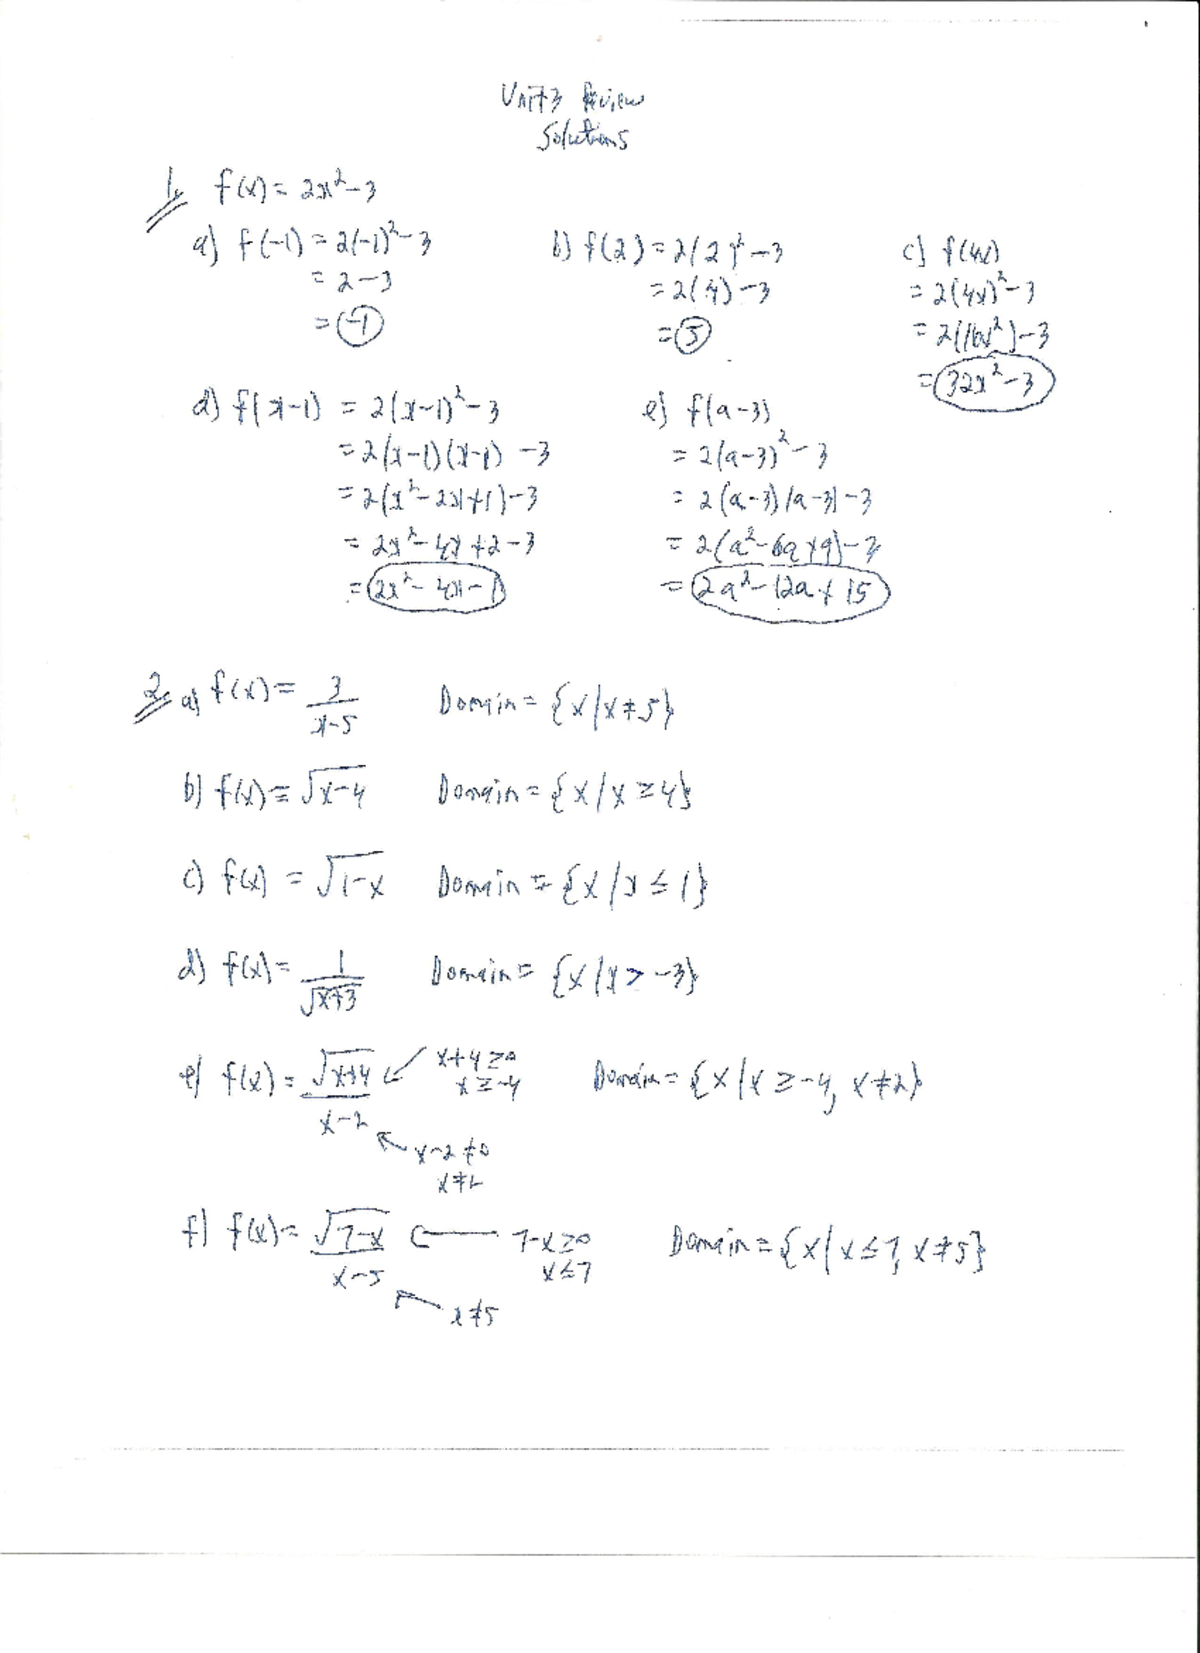 Unit 3 Review
Solutions
1. f(x) = 2x² - 3
a) f(-1) = 2(-1)² - 3
= 2 - 3
= -1
b) f(2) = 2(2)² - 3
= 2(4) - 3
= 5
c) f(4x)
= 2(4x)² - 3
= 2(16x²) - 3
= 32x² - 3
d) f(x-1) = 2(x-1)² - 3
= 2(x-1)(x-1) - 3
= 2(x² - 2x + 1) - 3
= 2x² - 4x + 2 - 3
= 2x² - 4x - 1
e) f(a-3)
= 2(a-3)² - 3
= 2(a-3)(a-3) - 3
= 2(a² - 6a + 9) - 3
= 2a² - 12a + 15
2. a) f(x) = 3/(x-5) Domain = {x/x ≠ 5}
b) f(x) = √(x-4) Domain = {x/x ≥ 4}
c) f(x) = √(1-x) Domain = {x/x ≤ 1}
d) f(x) = 1/√(x+3) Domain = {x/x > -3}
e) f(x) = √(x+4)/(x-2) ← x+4 ≥ 0 Domain = {x/x ≥ -4, x ≠ 2}
x ≥ -4
x-2 ≠ 0
x ≠ 2
f) f(x) = √(7-x)/(x-5) ← 7-x ≥ 0 Domain = {x/x ≤ 7, x ≠ 5}
x ≤ 7
x ≠ 5